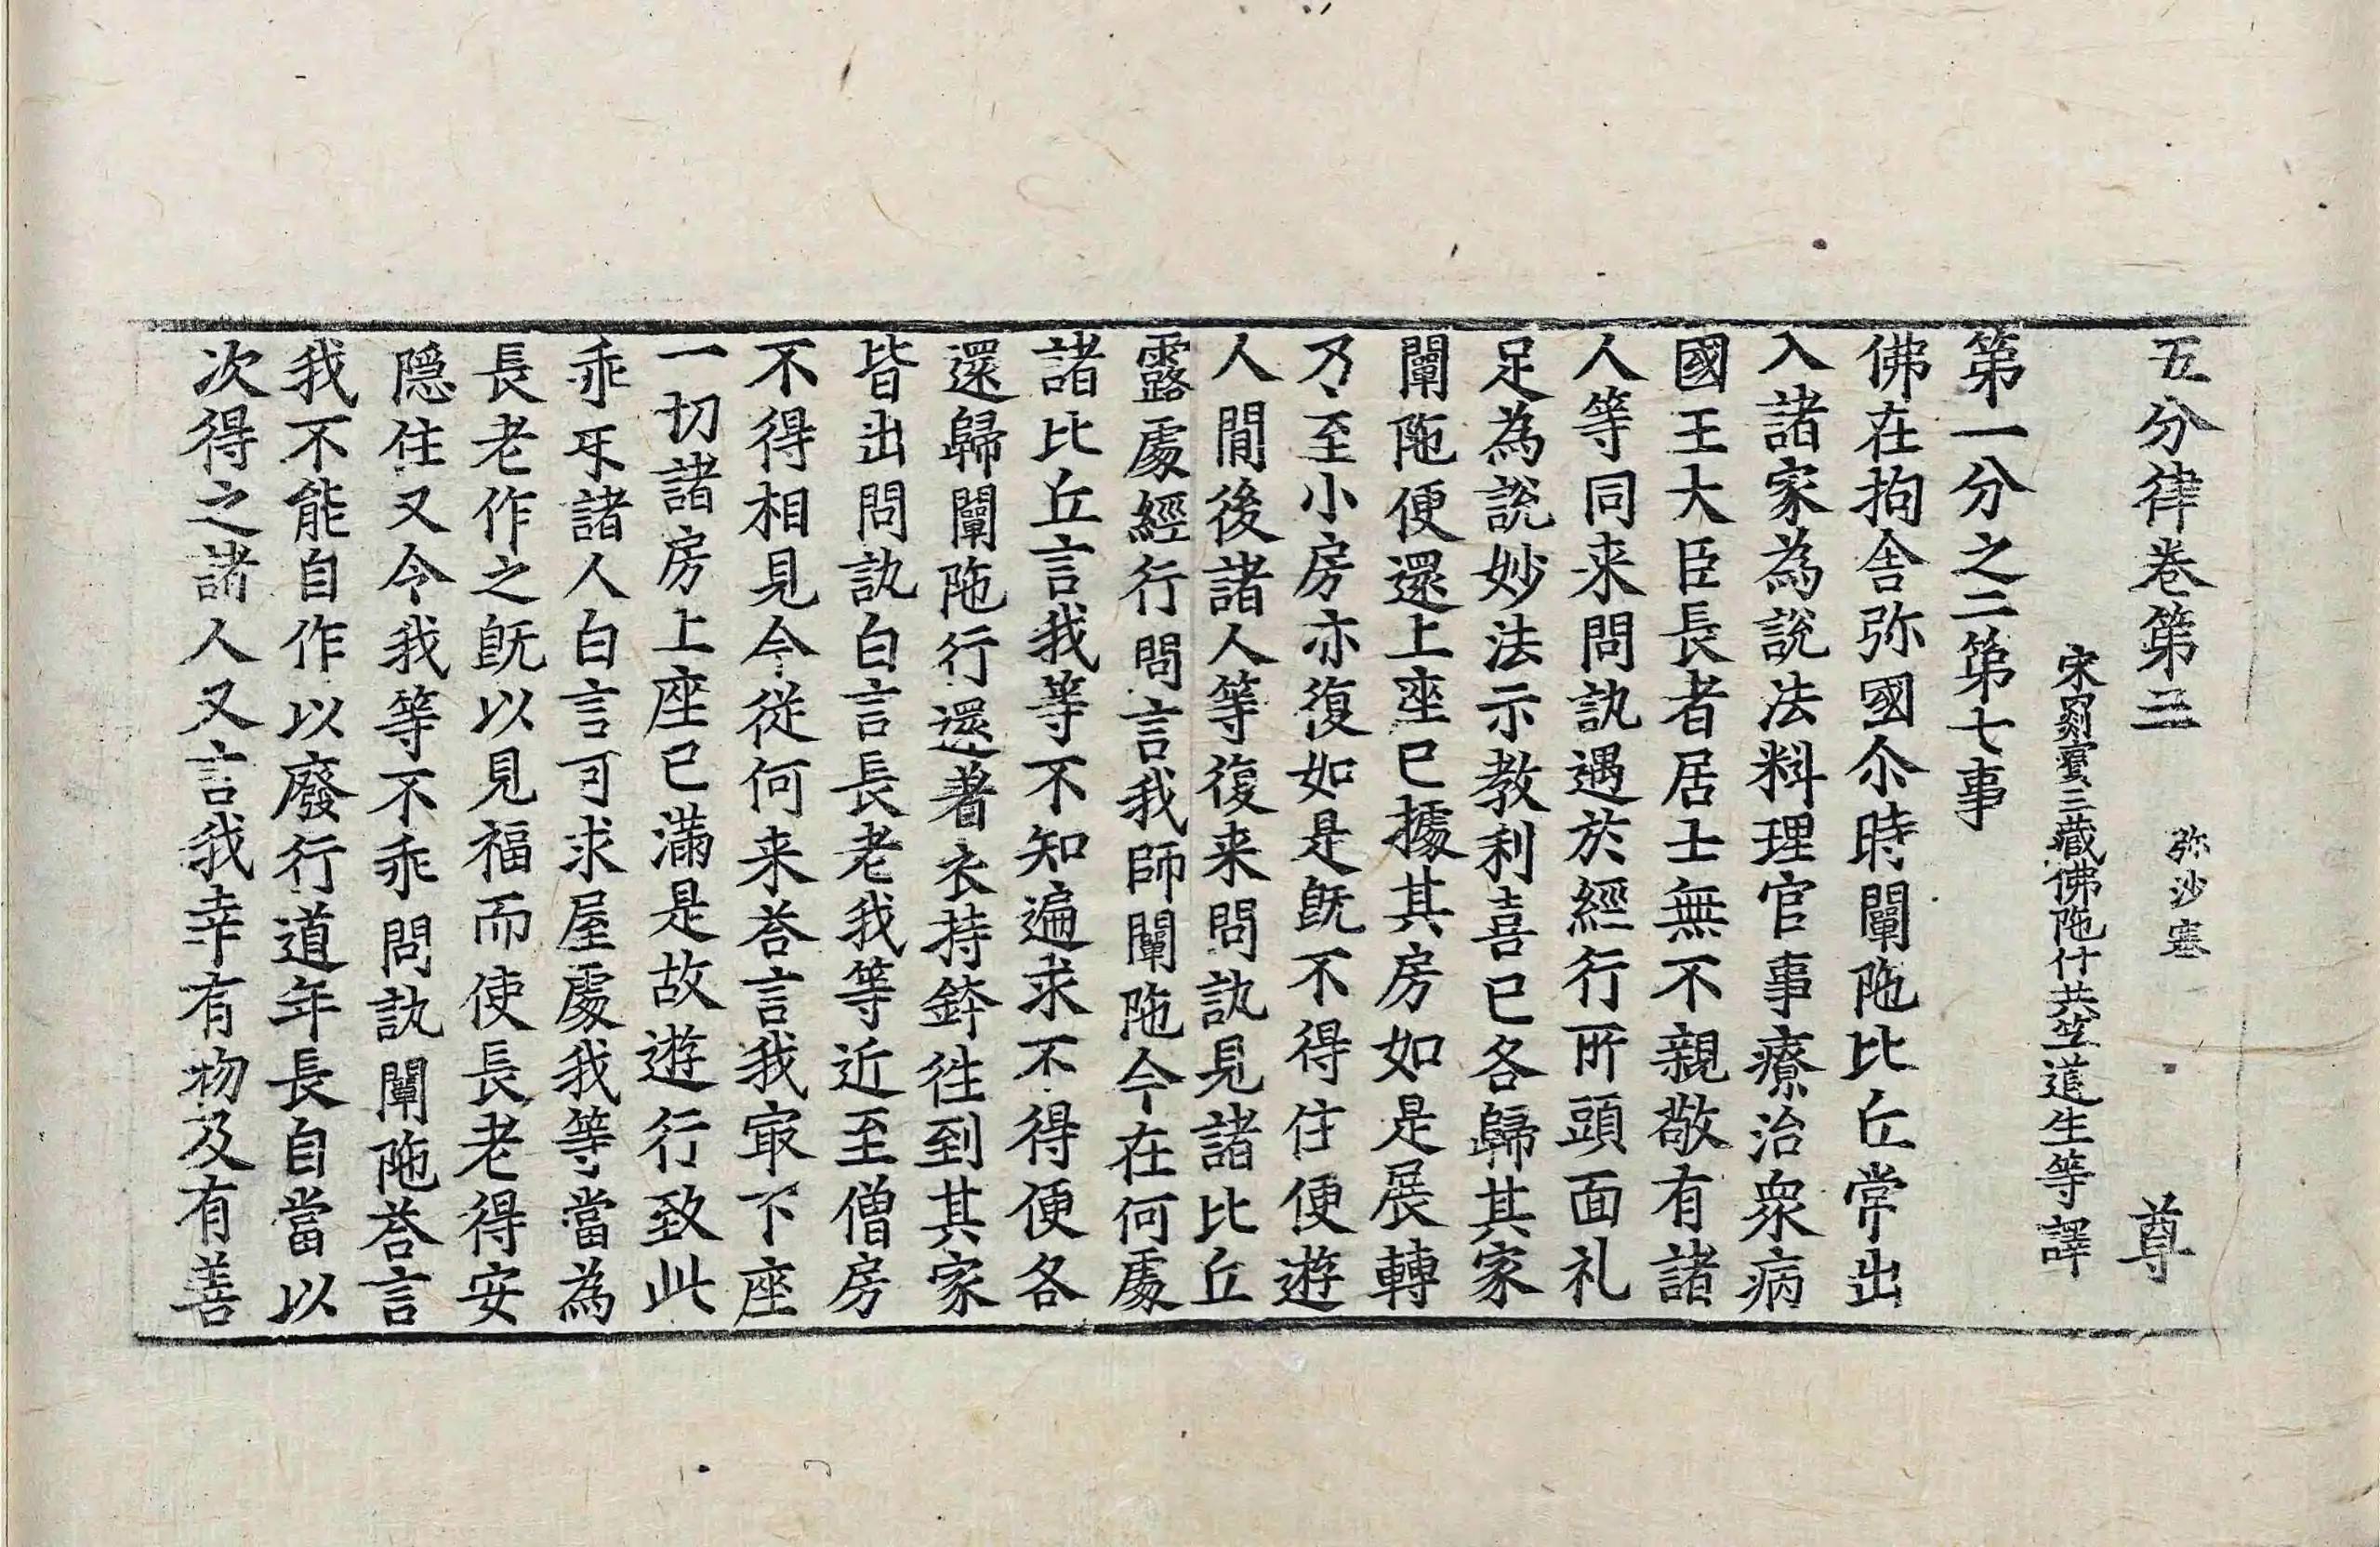 五分律卷第三 弥沙塞 尊
宋罽賓三藏佛陁什共竺道生等譯
第一分之二第七事
佛在拘舍弥國尒時闡陁比丘常出
入諸家為說法料理官事療治衆病
國王大臣長者居士無不親敬有諸
人等同来問訊遇於經行所頭面礼
足為說妙法示教利喜已各歸其家
闡陁便還上座已據其房如是展轉
乃至小房亦復如是旣不得住便遊
人閒後諸人等復来問訊見諸比丘
露處經行問言我師闡陁今在何處
諸比丘言我等不知遍求不得便各
還歸闡陁行還著衣持鉢往到其家
皆出問訊白言長老我等近至僧房
不得相見今從何来荅言我㝡下座
一切諸房上座已滿是故遊行致此
乖㸦諸人白言可求屋處我等當為
長老作之旣以見福而使長老得安
隠住又令我等不乖問訊闡陁荅言
我不能自作以廢行道年長自當以
次得之諸人又言我幸有物及有善